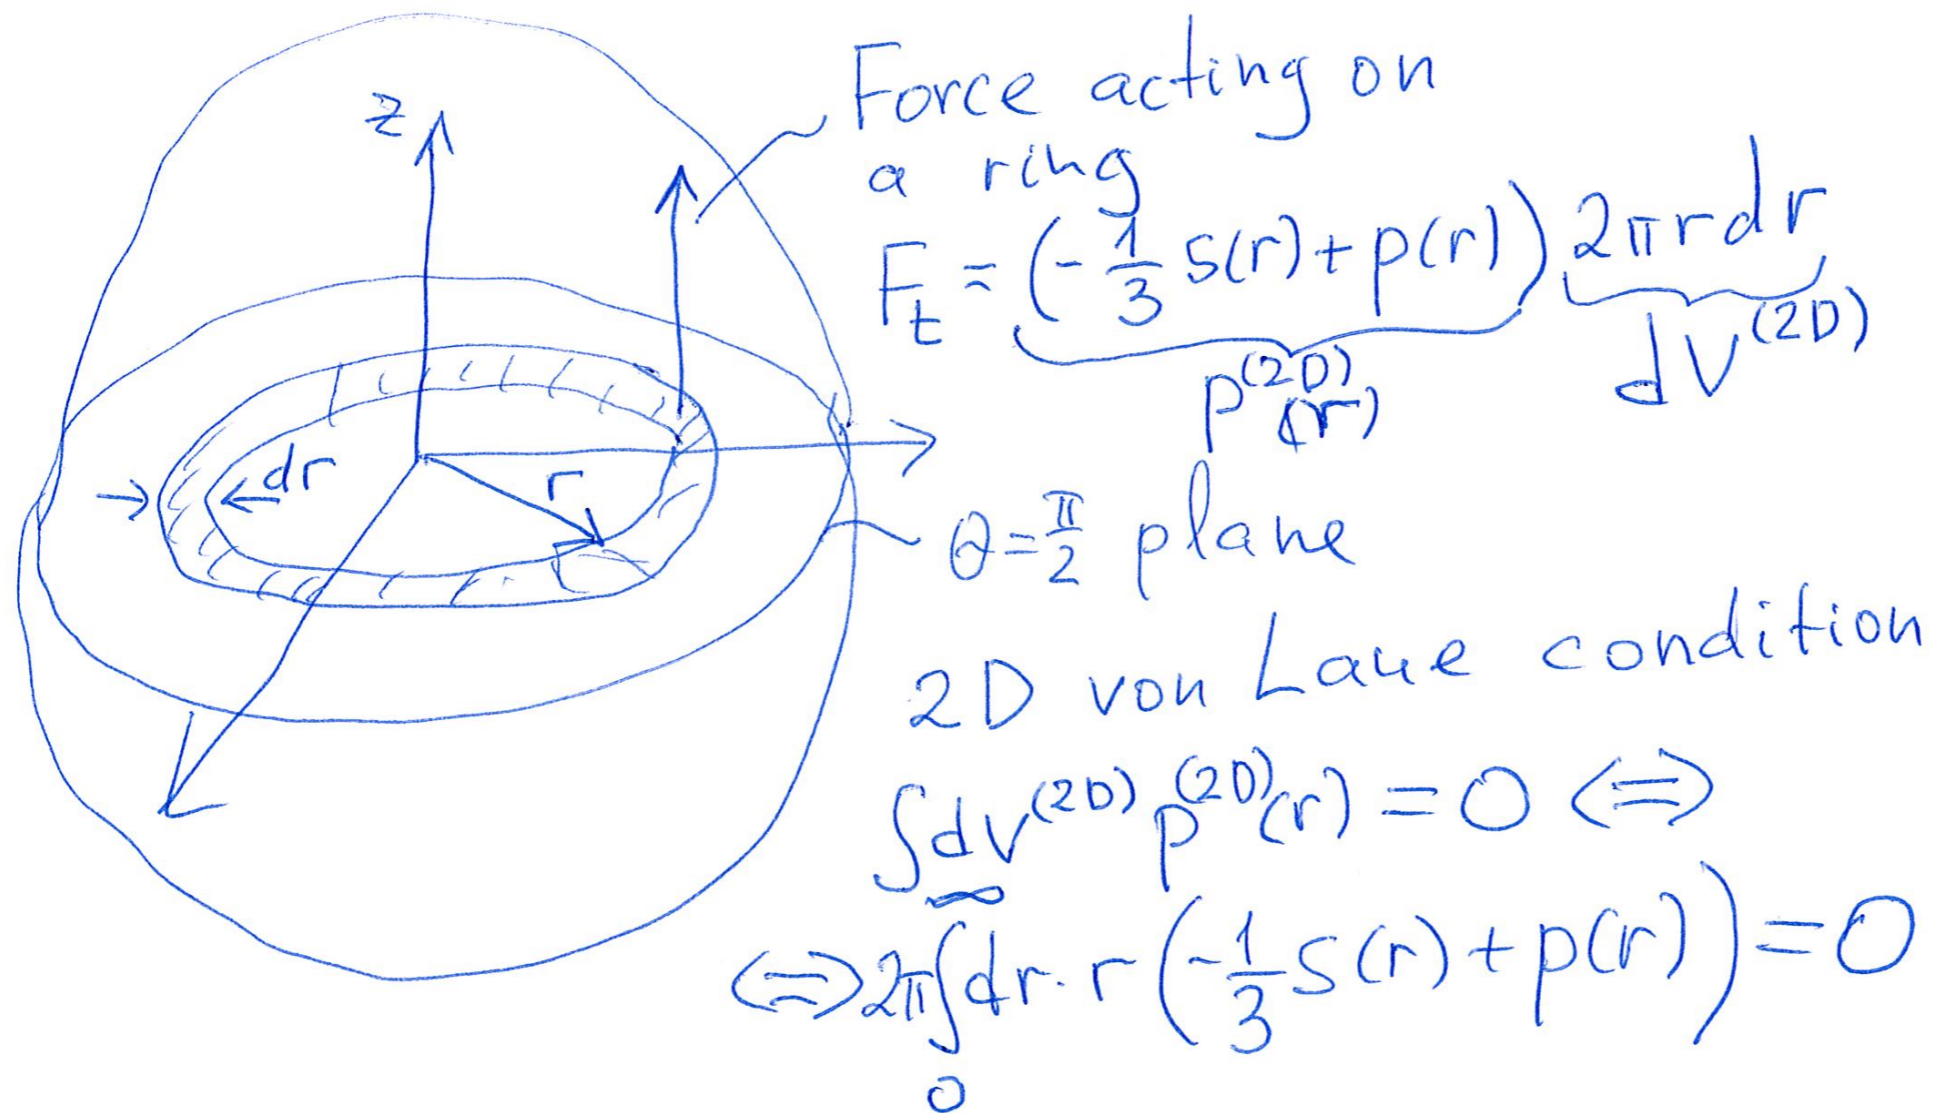 z
Force acting on
a ring
F_t = (-1/3 s(r) + p(r)) 2πrdr
p^(2D)(r)
dV^(2D)
→ ← dr
r
θ = π/2 plane
2D von Laue condition
∫dV^(2D) p^(2D)(r) = 0 ⟺
⟺ 2π∫_0^∞ dr·r (-1/3 s(r) + p(r)) = 0